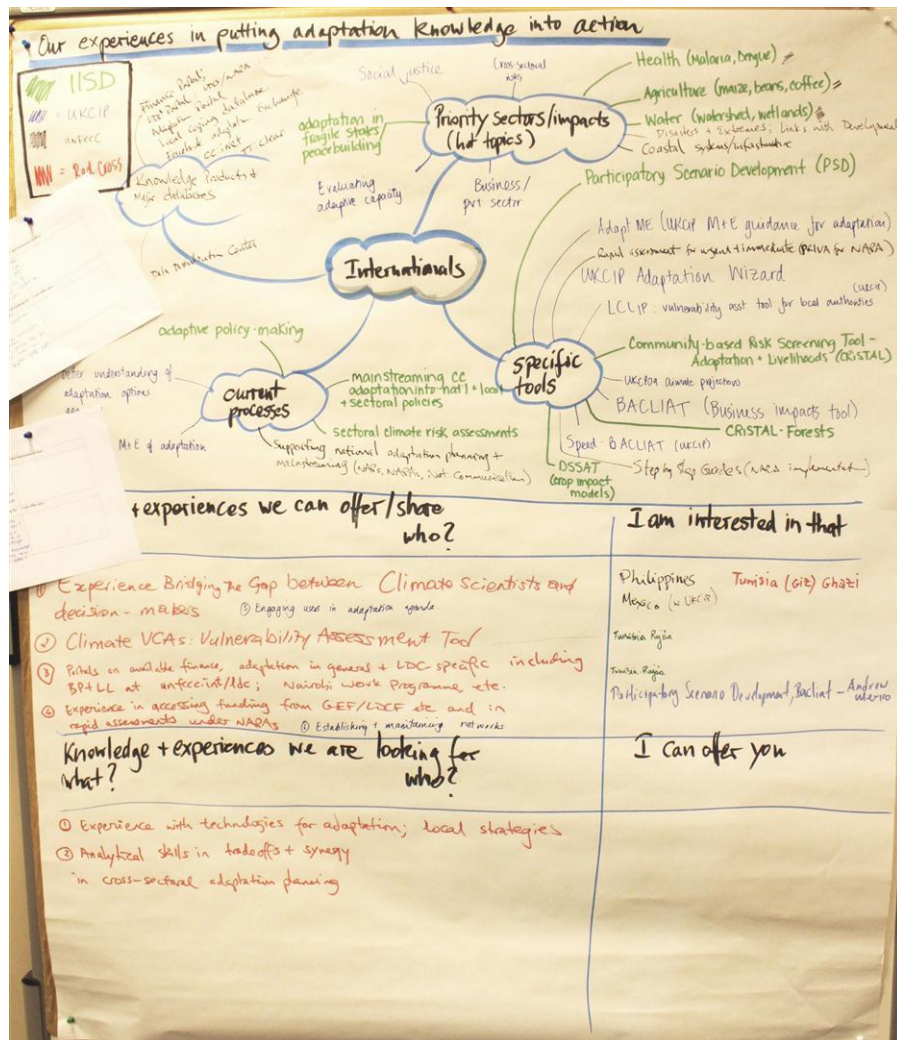 Our experiences in putting adaptation knowledge into action
IISD
= UKCIP
UNFCCC
= Red Cross
Finance Portal;
Adaptation Portal
Local coping database
Knowledge Products +
Major databases
Data Distribution Center
Social justice
Cross-sectoral
adaptation in
fragile states/
peacebuilding
Evaluating
adaptive capacity
Business/
pvt sector
Priority sectors/impacts
(hot topics)
Health (Malaria, Dengue)
Agriculture (maize, beans, coffee)
Water (watershed, wetlands)
Disasters + Extremes; Links with Development
Coastal systems/infrastructure
Internationals
Participatory Scenario Development (PSD)
Adapt ME (UKCIP M+E guidance for adaptation)
Rapid assessment for urgent + immediate
UKCIP Adaptation Wizard
(UKCIP)
LCLIP: vulnerability asst tool for local authorities
Specific
tools
Community-based Risk Screening Tool -
Adaptation + Livelihoods (CRiSTAL)
climate projections
BACLIAT (Business impacts tool)
CRiSTAL-Forests
Speed-BACLIAT (UKCIP)
Step by Step Guides (NAPA implementation)
DSSAT
(crop impact
models)
adaptive policy-making
current
processes
better understanding of
adaptation options
M+E of adaptation
mainstreaming CC
adaptation into nat'l + local
+ sectoral policies
sectoral climate risk assessments
Supporting national adaptation planning +
mainstreaming (NAPs, NAPAs, Nat Communications)
+experiences we can offer/share
who?
I am interested in that
① Experience Bridging The Gap between Climate Scientists and
decision-makers ⑤ Engaging users in adaptation agenda
② Climate VCAs: Vulnerability Assessment Tool
③ Portals on available finance, adaptation in general + LDC-specific including
BP+LL at unfccc.int/ldc; Nairobi Work Programme, etc.
④ Experience in accessing funding from GEF/LDCF etc and in
rapid assessments under NAPAs ⑥ Establishing + maintaining networks
Philippines
Tunisia (GIZ) Ghazi
Mexico (w UKCIP)
Tunisia
Tunisia
Participatory Scenario Development, Bacliat - Andrew
Knowledge + experiences we are looking for
what?
who?
I can offer you
① Experience with technologies for adaptation; local strategies
② Analytical skills in tradeoffs + synergy
in cross-sectoral adaptation planning